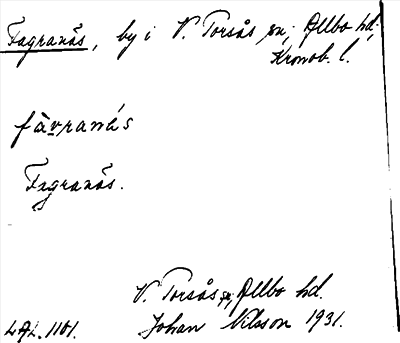 Fagranäs, by i V. Torsås sn, Allbo hd,
Kronob. l.
fàvranäs
Fagranäs.
V. Torsås sn, Allbo hd.
LAL. 1101. Johan Nilsson 1931.